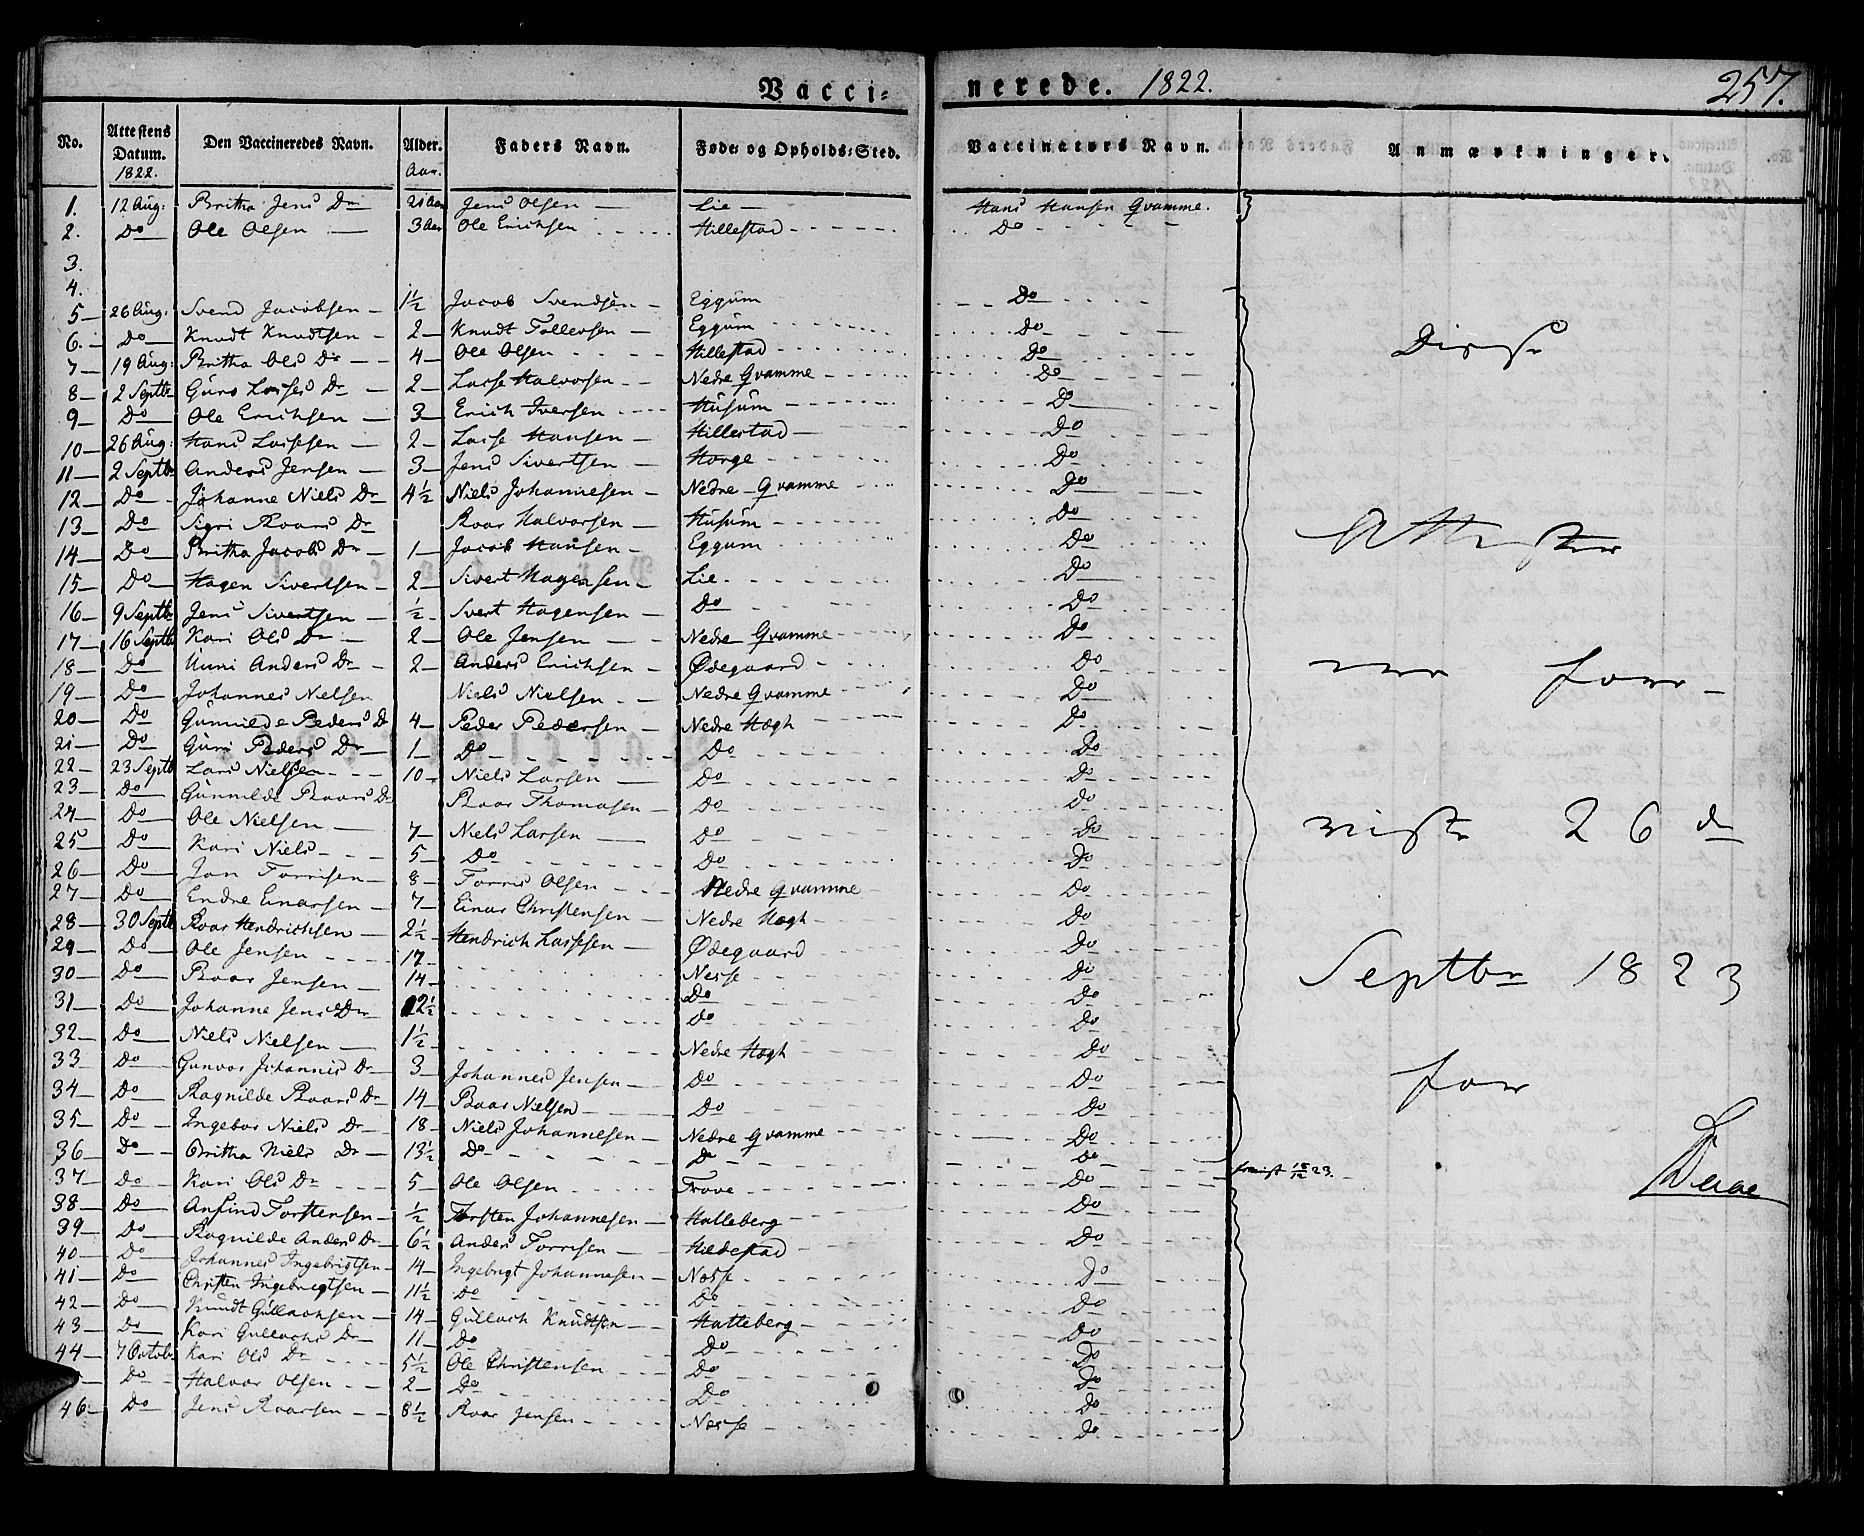 Vacci= nerede. 1822. 257.
No. Attestens Datum. 1822. Den Vaccineredes Navn. Alder. Aar. Faders Navn. Føde- og Opholds-Sted. Vaccinateurs Navn. Anmærkninger.
1. 12 Aug: Britha Jens Dr Jens Olsen Lie Hans Hansen Qvamme.
2. Do Ole Olsen 3 Aar Ole Erichsen Hillestad Do
3.
4.
5 26 Aug: Svend Jacobsen 1½ Jacob Svendsen Eggum Do
6. Do Knudt Knudtsen 2 Knudt Tollevsen Eggum Do Disse
7 19 Aug: Britha Ols Dr 4 Ole Olsen Hillestad Do
8 2 Septbr Guro Lasses Dr 2 Lasse Halvorsen Nedre Qvamme Do
9 Do Ole Erichsen 3 Erich Iversen Husum Do
10 26 Aug: Hans Lassesen 2 Lasse Hansen Hillestad Do
11 2 Septbr Anders Jensen 3 Jens Sivertsen Horge Do
12 Do Johanne Niels Dr 4½ Niels Johannesen Nedre Qvamme Do
13 Do Sigri Roars Dr Roar Halvorsen Husum Do Attester
14 Do Britha Jacobs Dr 1 Jacob Hansen Eggum Do
15 Do Hagen Sivertsen 2 Sivert Hagensen Lie Do
16 9 Septbr Jens Sivertsen ½ Svert Hagensen Do Do
17 16 Septbr Kari Ols Dr 2 Ole Jensen Nedre Qvamme Do
18 Do Unni Anders Dr 2 Anders Erichsen Ødegaard Do
19 Do Johannes Nielsen Niels Nielsen Nedre Qvamme Do
20 Do Gunnilde Peders Dr 4 Peder Pedersen Nedre Høgh Do
21 Do Guri Peders Dr 1 Do Do Do
22 23 Septb Lars Nielsen 10 Niels Larsen Do Do
23 Do Gunnilde Roars Dr Roar Thomasen Do Do
24 Do Ole Nielsen 7 Niels Larsen Do Do 26 d
25 Do Kari Niels 5 Do Do Do
26 Do Jon Torrisen 8 Torris Olsen Nedre Qvamme Do
27 Do Endre Einarsen 7 Einar Christensen Nedre Høgh Do
28 30 Septb Roar Hendrichsen 2½ Hendrich Lassesen Ødegaard Do
29 Do Ole Jensen 17 Nesse Do Septbr 1823
30 Do Roar Jensen 14 Do Do
31 Do Johanne Jens Dr 12½ Do Do
32 Do Niels Nielsen 1½ Nedre Høgh Do
33 Do Gunvor Johannis Dr 3 Johannes Jensen Do Do
34 Do Ragnilde Roars Dr 14 Roar Nielsen Do Do
35 Do Ingebor Niels Dr 18 Niels Johannesen Nedre Qvamme Do
36 Do Britha Niels Dr 13½ Do Do Do
37 Do Kari Ols Dr 5 Ole Olsen Trave Do
38 Do Anfind Torstensen ½ Torsten Johannesen Halleberg Do
39 Do Ragnilde Anders Dr 6½ Anders Torrisen Hildestad Do
40 Do Johannes Ingebrigtsen 14 Ingebrigt Johannesen Nesse Do
41 Do Christen Ingebrigtsen 11½ Do Do Do
42 Do Knudt Gullachsen 14 Gullach Knudtsen Halleberg Do
43 Do Kari Gullachs Dr 11 Do Do Do
44 7 Octob Kari Ols Dr 5½ Ole Christensen Do Do
Do Halvor Olsen 2 Do Do Do
46 Do Jens Roarsen 8½ Roar Jensen Nesse Do